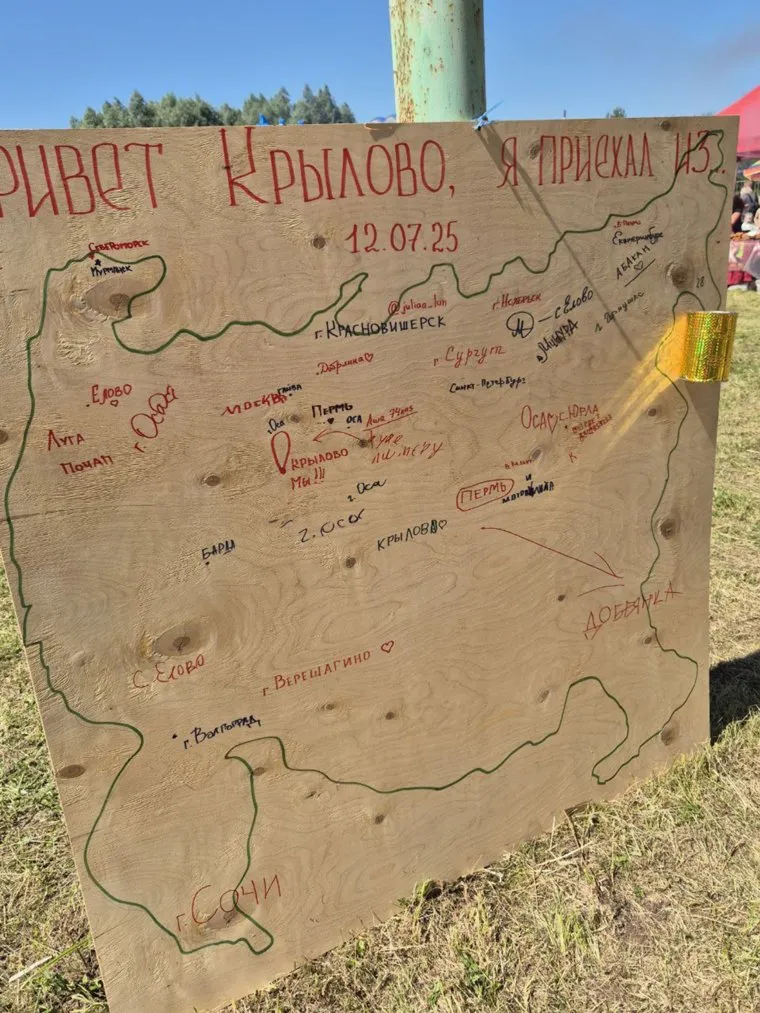 РИВЕТ КРЫЛОВО, Я ПРИЕХАЛ ИЗ.
12.07.25
СЕВЕРОМОРСК
МУРМАНСК
Екатеринбург
АБАКАН
@julias_lun
г. КРАСНОВИШЕРСК
М - с Елово
Добрянка
г. Сургут
Санкт-Петербург
Елово
г. ОСА
МОСКВА
ПЕРМЬ
ОСА
Оса
ОСА
с ЮРЛА
ЛУГА
КРЫЛОВО
МЫ!!!
г. Оса
ПЕРМЬ
г. ОСА
КРЫЛОВО
БАРДА
ДОБРЯНКА
с. Елово
г. ВЕРЕЩАГИНО
г. ВОЛГОГРАД
г. СОЧИ